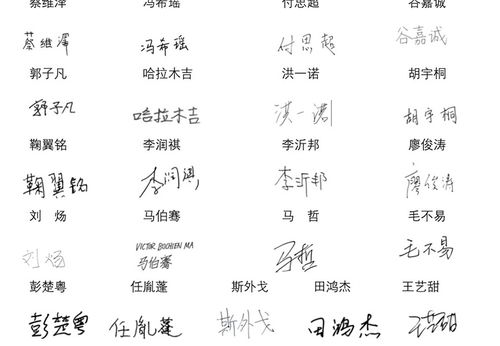 蔡维泽 冯希瑶 付思超 谷嘉诚
蔡维泽 冯希瑶 付思超 谷嘉诚
郭子凡 哈拉木吉 洪一诺 胡宇桐
郭子凡 哈拉木吉 洪一诺 胡宇桐
鞠翼铭 李润祺 李沂邦 廖俊涛
鞠翼铭 李润祺 李沂邦 廖俊涛
刘炀 马伯骞 马哲 毛不易
VICTOR BOCHIEN MA
刘炀 马伯骞 马哲 毛不易
彭楚粤 任胤蓬 斯外戈 田鸿杰 王艺甜
彭楚粤 任胤蓬 斯外戈 田鸿杰 王艺甜